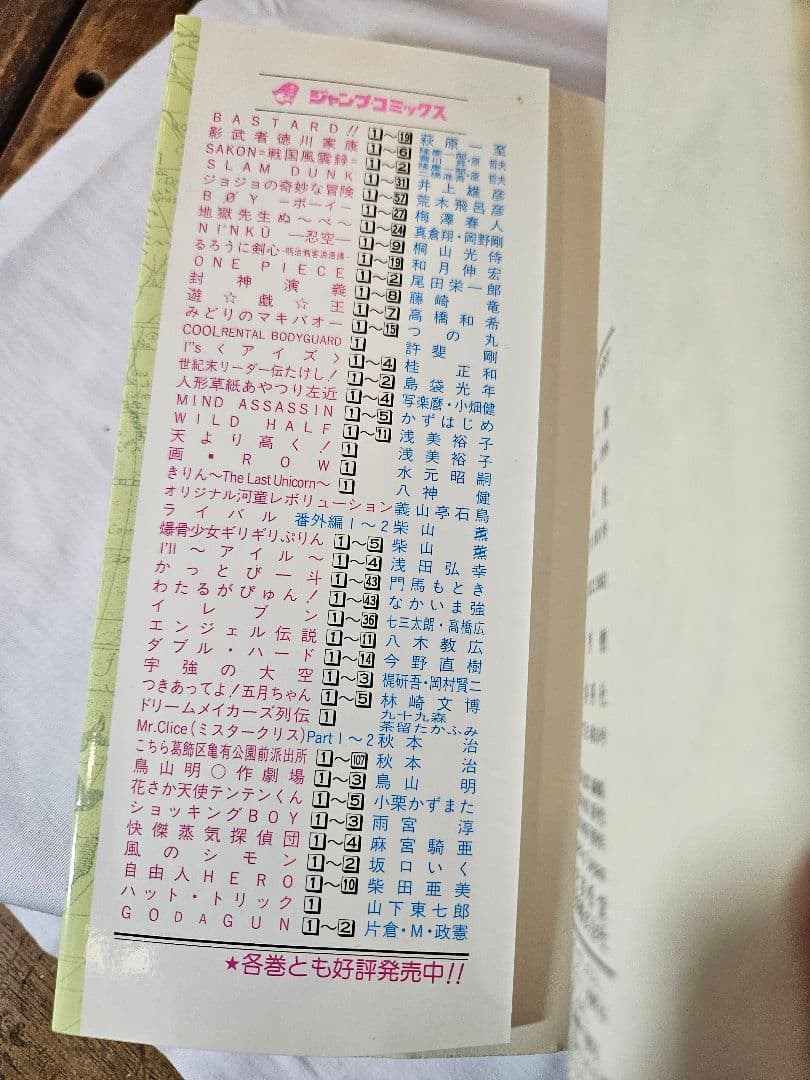 ジャンプ・コミックス
BASTARD!! 1〜19 萩原一至
影武者徳川家康 1〜6 隆慶一郎・原哲夫
SAKON=戦国風雲録= 1〜2 原哲夫
SLAM DUNK 1〜31 井上雄彦
ジョジョの奇妙な冒険 1〜57 荒木飛呂彦
BØY ―ボーイ― 1〜27 梅澤春人
地獄先生ぬ〜べ〜 1〜24 真倉翔・岡野剛
NINKŪ ―忍空― 1〜9 桐山光侍
るろうに剣心-明治剣客浪漫譚- 1〜19 和月伸宏
ONE PIECE 1〜2 尾田栄一郎
封神演義 1〜8 藤崎竜
遊☆戯☆王 1〜7 高橋和希
みどりのマキバオー 1〜15 つの丸
COOL RENTAL BODYGUARD 1 許斐剛
I"s〈アイズ〉 1〜4 桂正和
世紀末リーダー伝たけし! 1〜2 島袋光年
人形草紙あやつり左近 1〜4 写楽麿・小畑健
MIND ASSASSIN 1〜5 かずはじめ
WILD HALF 1〜11 浅美裕子
天より高く! 1 浅美裕子
画・ROW 1 水元昭嗣
きりん〜The Last Unicorn〜 1 八神健
オリジナル河童レボリューション 義山亭石鳥
ライバル 番外編1〜2 柴山薫
爆骨少女ギリギリぷりん 1〜5 柴山薫
I'll 〜アイル〜 1〜4 浅田弘幸
かっとび一斗 1〜43 門馬もとき
わたるがぴゅん! 1〜43 なかいま強
イレブン 1〜36 七三太朗・高橋広
エンジェル伝説 1〜11 八木教広
ダブル・ハード 1〜14 今野直樹
宇強の大空 1〜3 梶研吾・岡村賢二
つきあってよ!五月ちゃん 1〜5 林崎文博
ドリームメイカーズ列伝 1 九十九森 茶留たかふみ
Mr.Clice(ミスタークリス) Part 1〜2 秋本治
こちら葛飾区亀有公園前派出所 1〜107 秋本治
鳥山明○作劇場 1〜3 鳥山明
花さか天使テンテンくん 1〜5 小栗かずまた
ショッキングBOY 1〜3 雨宮淳
快傑蒸気探偵団 1〜4 麻宮騎亜
風のシモン 1〜2 坂口いく
自由人HERO 1〜10 柴田亜美
ハット・トリック 1 山下東七郎
GODAGUN 1〜2 片倉・M・政憲
★各巻とも好評発売中!!